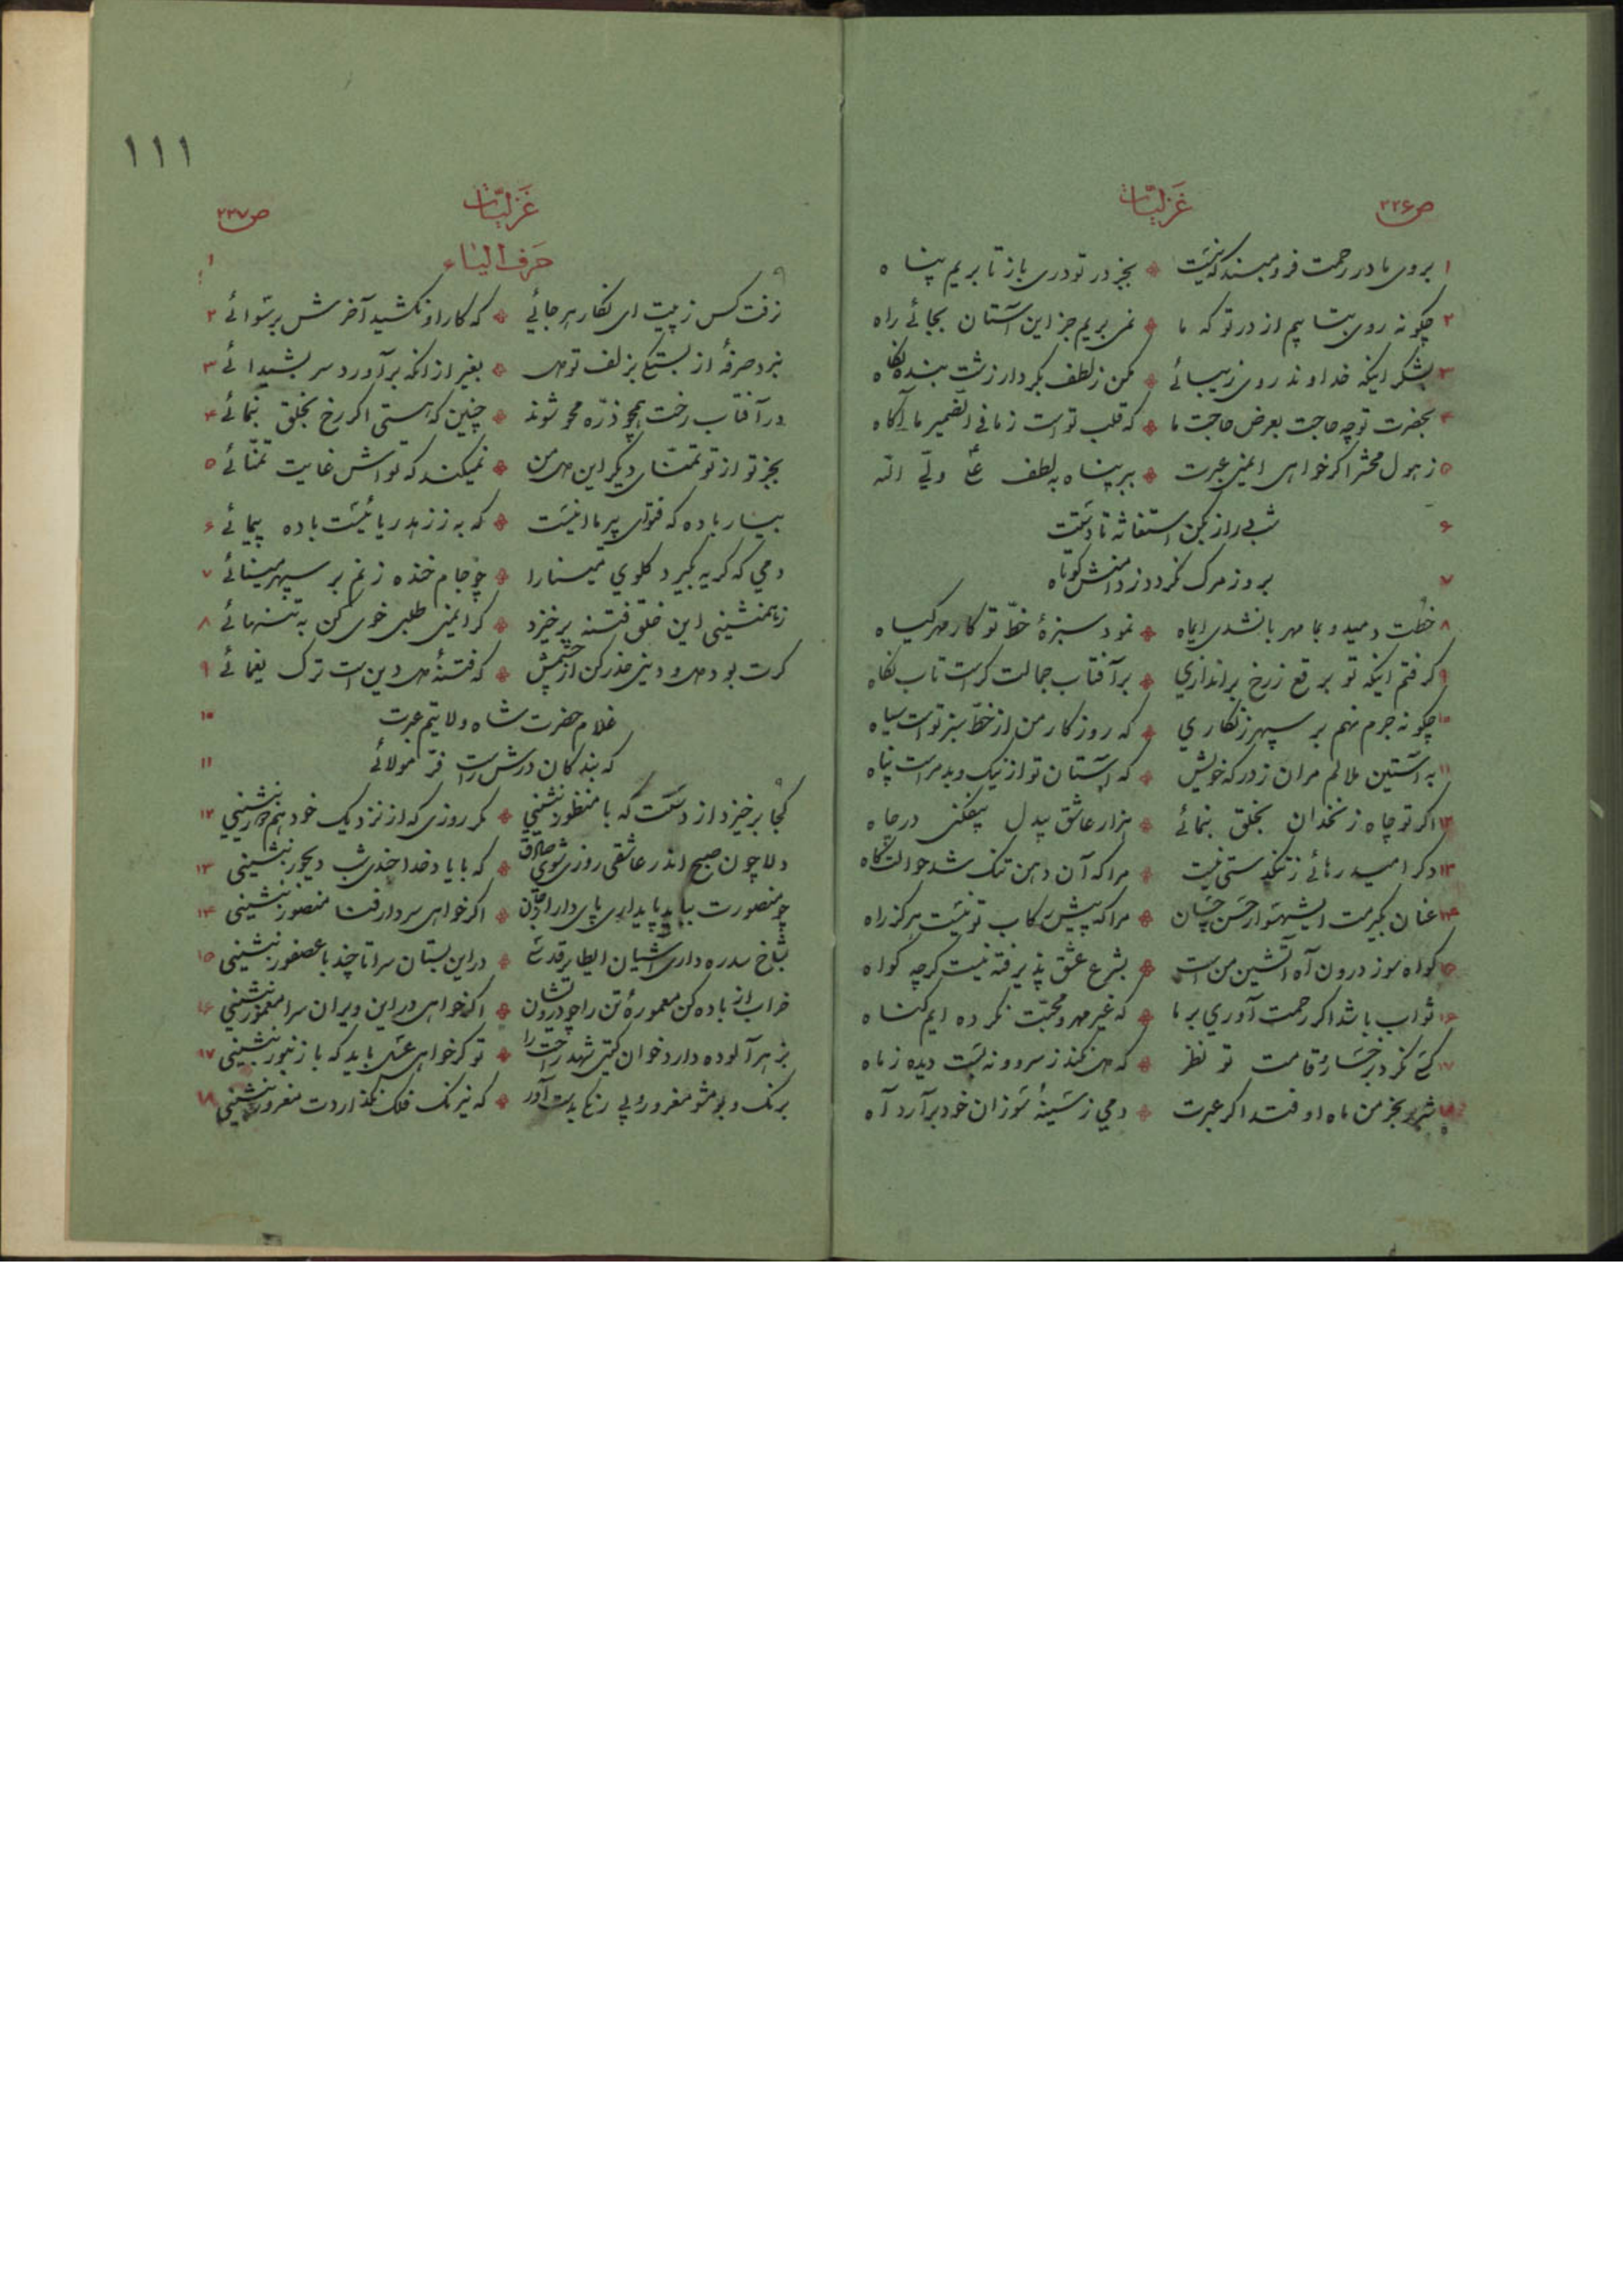 ص ۲۳۶
غزلیّات
۱ بروی ما در رحمت فرو مبند که نیست ❊ بجز در تو دری باز تا بریم پناه
۲ چگونه روی بتابیم از در تو که ما ❊ نمی بریم جز این آستان بجائی راه
۳ بشکر اینکه خداوند روی زیبائی ❊ مکن ز لطف بکردار زشت بنده نگاه
۴ بحضرت تو چه حاجت بعرض حاجت ما ❊ که قلب تو است ز ما فی الضمیر ما آگاه
۵ ز هول محشر اگر خواهی ایمنی عبرت ❊ ببر پناه به لطف علی ولیّ اله
۶ شبی دراز بکن استغاثه تا دستت
۷ بروز مرگ نگردد ز دامنش کوتاه
۸ خطت دمید و بما مهربان شدی ایماه ❊ نمود سبزهٔ خطّ تو کار مهر گیاه
۹ گرفتم اینکه تو برقع ز رخ براندازی ❊ بر آفتاب جمالت کراست تاب نگاه
۱۰ چگونه جرم نهم بر سپهر زنگاری ❊ که روزگار من از خطّ سبز تو است سیاه
۱۱ به آستین ملالم مران ز درگه خویش ❊ که آستان تو از نیک و بد مراست پناه
۱۲ اگر تو چاه زنخدان بخلق بنمائی ❊ هزار عاشق بیدل بیفکنی در چاه
۱۳ دگر امید رهائی ز تنگدستی نیست ❊ مرا که آن دهن تنگ شد حوالتگاه
۱۴ عنان بگیرمت ایشهسوار حسن چسان ❊ مرا که پیش رکاب تو نیست هرگز راه
۱۵ گواه سوز درون آه آتشین من است ❊ بشرع عشق پذیرفته نیست گرچه گواه
۱۶ ثواب باشد اگر رحمت آوری بر ما ❊ که غیر مهر و محبّت نکرده ایم گناه
۱۷ کسی نکرد برخسار و قامت تو نظر ❊ که دل نکند ز سرو و نه بست دیده ز ماه
۱۸ شرر بخرمن ماه اوفتد اگر عبرت ❊ دمی ز سینهٔ سوزان خود برآرد آه
۱۱۱
ص ۲۳۷
غزلیّات
۱ حرف الیاء
نرفت کس ز پیت ای نگار هر جائی ❊ که کار او نکشید آخرش برسوائی ۲
نبرد صرفهٔ از بستگی بزلف تو دل ❊ بغیر از انکه برآورد سر بشیدائی ۳
در آفتاب رخت همچو ذرّه محو شوند ❊ چنین که هستی اگر رخ بخلق بنمائی ۴
بجز تو از تو تمنّای دیگر این دل من ❊ نمیکند که تو اش غایت تمنّائی ۵
بیار باده که فتوای پیر ما اینست ❊ که به ز زهد ریائیست باده پیمائی ۶
دمی که گریه بگیرد گلوی مینا را ❊ چو جام خنده زنم بر سپهر مینائی ۷
ز همنشینی این خلق فتنه برخیزد ❊ گر ایمنی طلبی خوی کن به تنهائی ۸
گرت بود دل و دینی حذر کن از چشمش ❊ که فتنهٔ دل و دین است ترک یغمائی ۹
غلام حضرت شاه ولایتیم عبرت ۱۰
که بندگان درش راست فرّ مولائی ۱۱
کجا برخیزد از دستت که با منظور بنشینی ❊ مگر روزی که از نزدیک خود هم دور بنشینی ۱۲
دلا چون صبح اندر عاشقی روزی شوی صادق ❊ که با یاد خدا خندی شب دیجور بنشینی ۱۳
چو منصورت بباید پایداری پای دار ❊ اگر خواهی سر دار فنا منصور بنشینی ۱۴
بشاخ سدره داری آشیان ایطایر قدسی ❊ در این بستان سرا تا چند با عصفور بنشینی ۱۵
خراب از باده کن معمورهٔ تن را چو درویشان ❊ اگر خواهی در این ویران سرا معمور بنشینی ۱۶
بزهر آلوده دارد خوان گیتی شهد راحت را ❊ تو گر خواهی عسل باید که با زنبور بنشینی ۱۷
برنگ و بو مشو مغرور و بی رنگی بدست آور ❊ که نیرنگ فلک نگذاردت مغرور بنشینی ۱۸